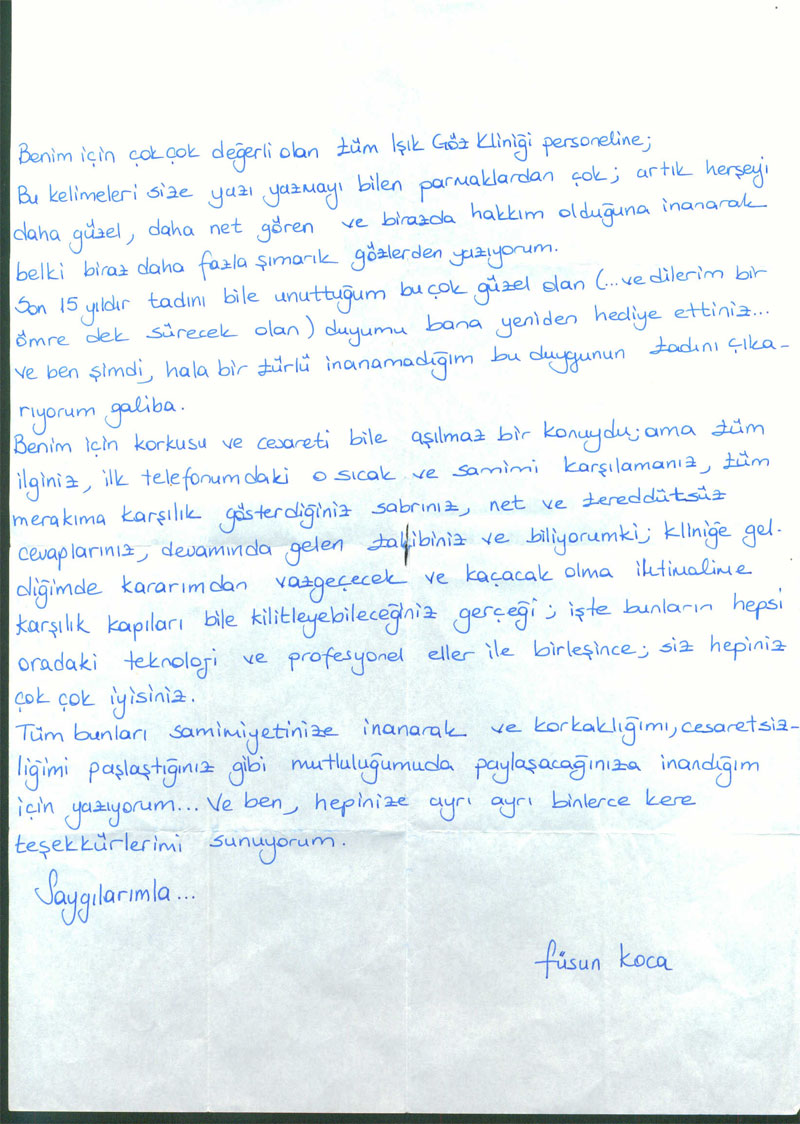 Benim için çok çok değerli olan tüm Işık Göz Kliniği personeline;
Bu kelimeleri size yazı yazmayı bilen parmaklardan çok; artık herşeyi
daha güzel, daha net gören ve birazda hakkım olduğuna inanarak
belki biraz daha fazla şımarık gözlerden yazıyorum.
Son 15 yıldır tadını bile unuttuğum bu çok güzel olan (...ve dilerim bir
ömre dek sürecek olan) duyumu bana yeniden hediye ettiniz...
ve ben şimdi, hala bir türlü inanamadığım bu duygunun tadını çıka-
rıyorum galiba.
Benim için korkusu ve cesareti bile aşılmaz bir konuydu; ama tüm
ilginiz, ilk telefonumdaki o sıcak ve samimi karşılamanız, tüm
merakıma karşılık gösterdiğiniz sabrınız, net ve tereddütsüz
cevaplarınız, devamında gelen takibiniz ve biliyorumki; kliniğe gel-
diğimde kararımdan vazgeçecek ve kaçacak olma ihtimalime
karşılık kapıları bile kilitleyebileceğiniz gerçeği; işte bunların hepsi
oradaki teknoloji ve profesyonel eller ile birleşince; siz hepiniz
çok çok iyisiniz.
Tüm bunları samimiyetinize inanarak ve korkaklığımı, cesaretsiz-
liğimi paşlaştığınız gibi mutluluğumuda paylaşacağınıza inandığım
için yazıyorum... Ve ben, hepinize ayrı ayrı binlerce kere
teşekkürlerimi sunuyorum.
Saygılarımla...
füsun koca